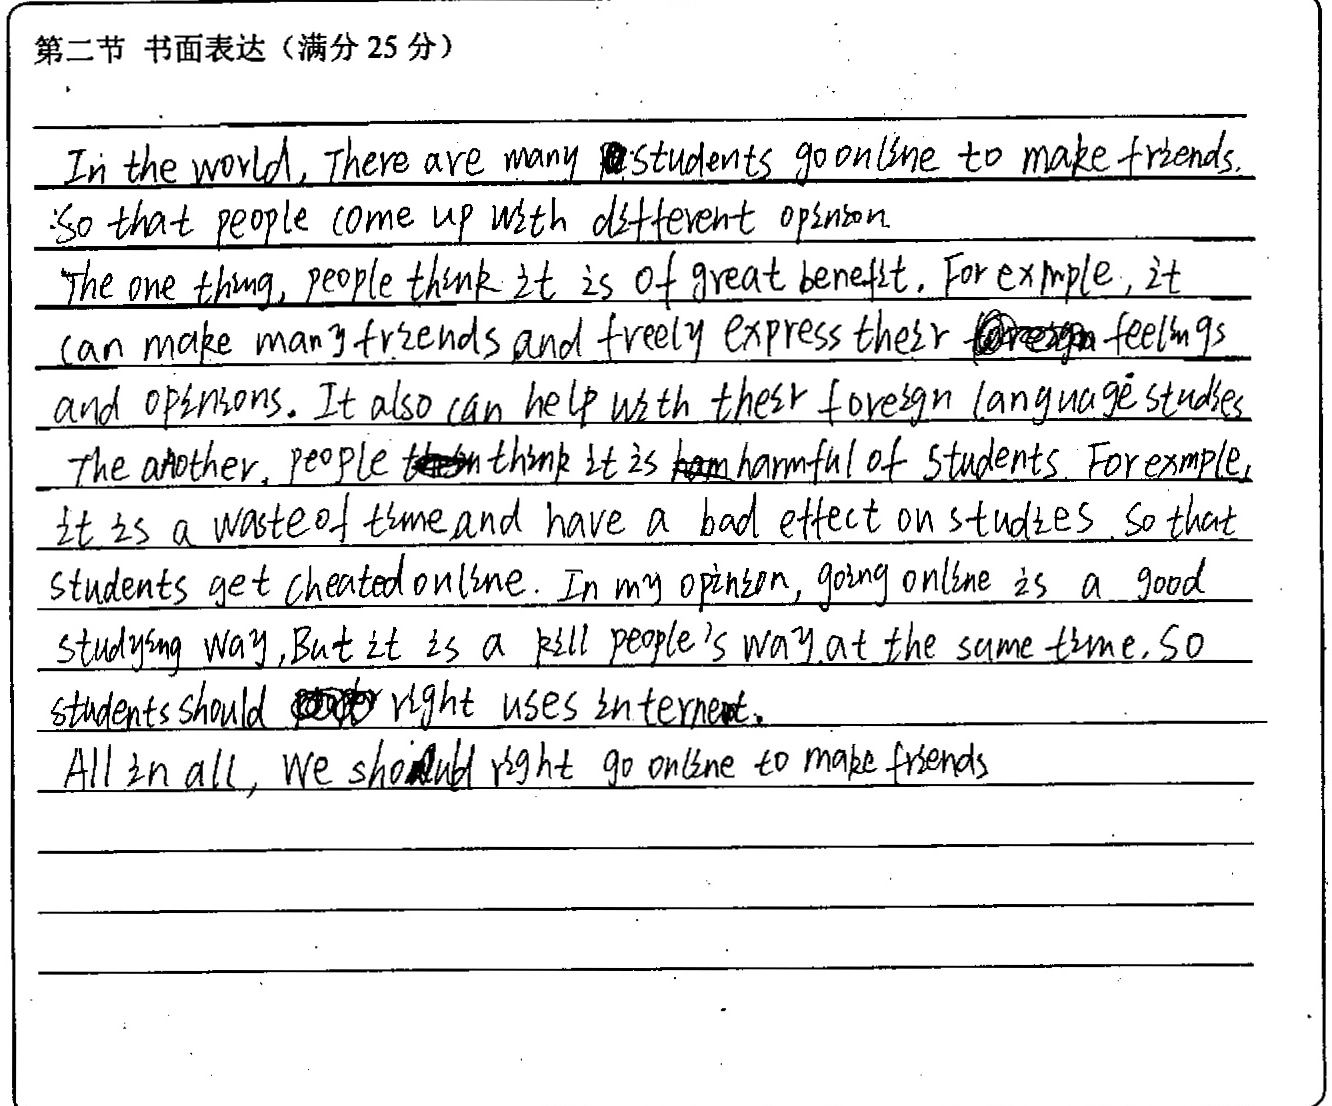 第二节 书面表达（满分 25 分）
In the world, There are many students go online to make friends.
So that people come up with different opinion.
The one thing, people think it is of great benefit. For exmple, it
can make many friends and freely express their feelings
and opinions. It also can help with their foreign language studies
The another, people think it is harmful of students. For exmple,
it is a waste of time and have a bad effect on studies. So that
students get cheated online. In my opinion, going online is a good
studying way, But it is a kill people's way at the same time. So
students should right uses internet.
All in all, We should right go online to make friends